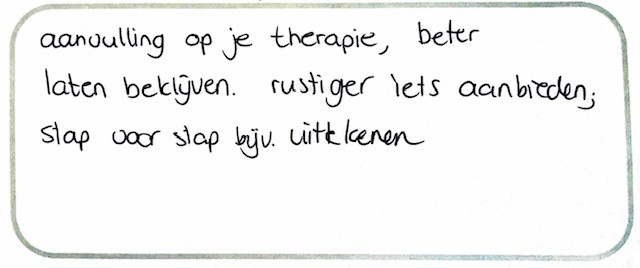 aanvulling op je therapie, beter
laten beklijven. rustiger iets aanbieden;
stap voor stap bijv. uittekenen